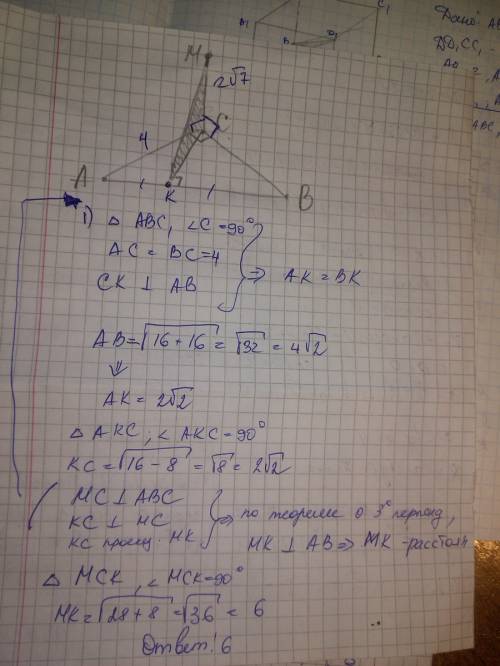 B₁
C₁
Дано: AB
DD₁CC₁
M
2√7
4
C
A
K
B
1) △ ABC, ∠C=90°
AC = BC=4
CK ⊥ AB
⇒ AK = BK
AB=√16+16 = √32 = 4√2
⇓
AK = 2√2
△ AKC, ∠ AKC=90°
KC = √16-8 = √8 = 2√2
MC ⊥ ABC
KC ⊥ MC
KC проекц. MK
⇒ по теореме о 3ˣ перпенд,
MK ⊥ AB ⇒ MK - расстоян
△ MCK, ∠ MCK=90°
MK = √28+8 = √36 = 6
Ответ: 6